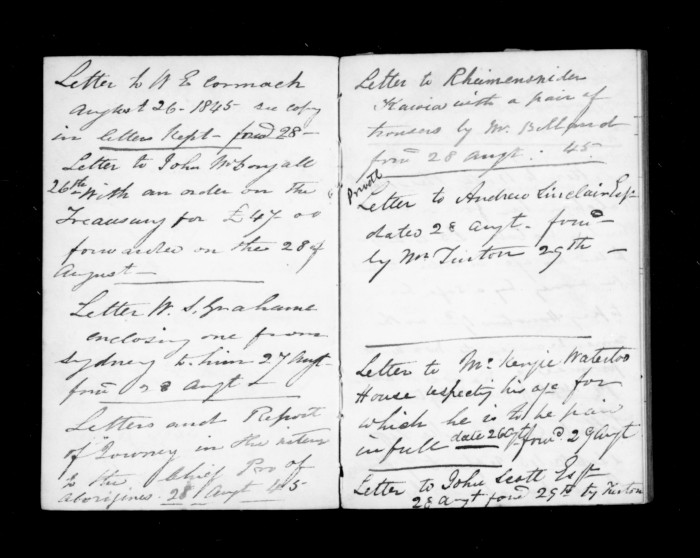 Letter to W E Cormack
August 26 - 1845 see copy
in letters Kept - forwd 28 -
Letter to John McDougall
26th with an order on the
Treausury for £47-00
forwarded on the 28 of
August
Letter W. S. Grahame
enclosing one from
Sydney to him 27 Augt
forwd 28 Augt
Letters and Report
of Journey in the
to the Chief Pro of
Aborigines. 28 Augt 45
Letter to Rheimensnider
Kawia with a pair of
trousers by Mr.
forwd 28 augt. 45.
Privat
Letter to Andrew Sinclair Esqr
dated 28 augt. forwd
by Mr Tinton 29th -
Letter to Mc Kenzie Waterloo
House respecting his age for
which he is to be paid
in full date 26 Augt forwd. 29 Augt
Letter to John Scott Esqr
28 Augt forwd 29th by Tinton